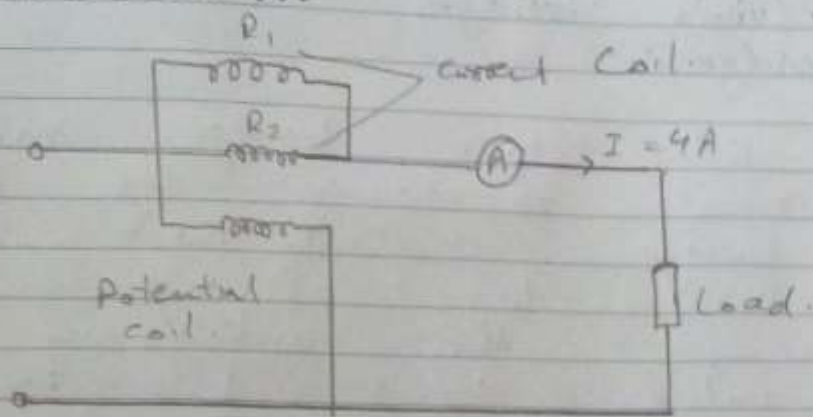 R1
Current Coil.
R2
A
I = 4 A
Potential
coil.
Load.